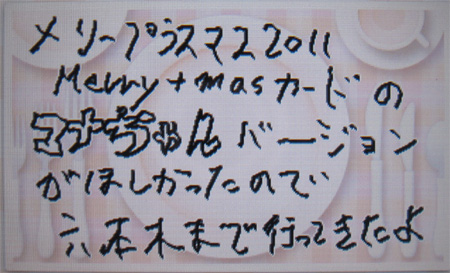 メリープラスマス2011
Merry+masカードの
ちゃんバージョン
がほしかったので
六本木まで行ってきたよ